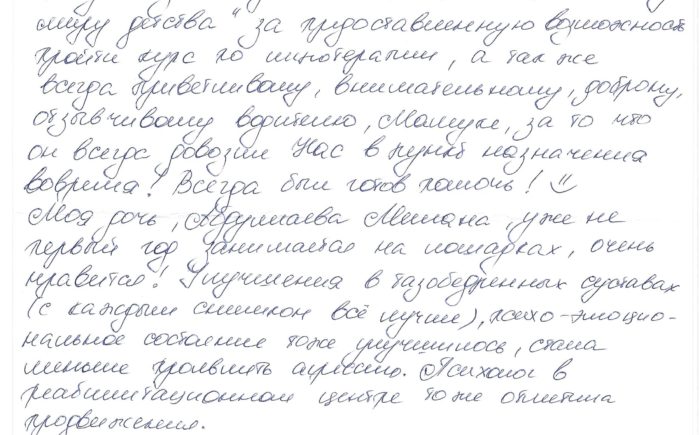 миру детства" за предоставленную возможность
пройти курс по иппотерапии, а так же
всегда приветливому, внимательному, доброму,
отзывчивому водителю, Мамуке, за то что
он всегда довозил Нас в пункт назначения
вовремя! Всегда был готов помочь!
Моя дочь, Абдуллаева Милана, уже не
первый год занимается на лошадках, очень
нравится! Улучшения в тазобедренных суставах
(с каждым снимком всё лучше), психо-эмоцио-
нальное состояние тоже улучшилось, стала
меньше проявлять агрессию. Психолог в
реабилитационном центре тоже отметила
продвижения.